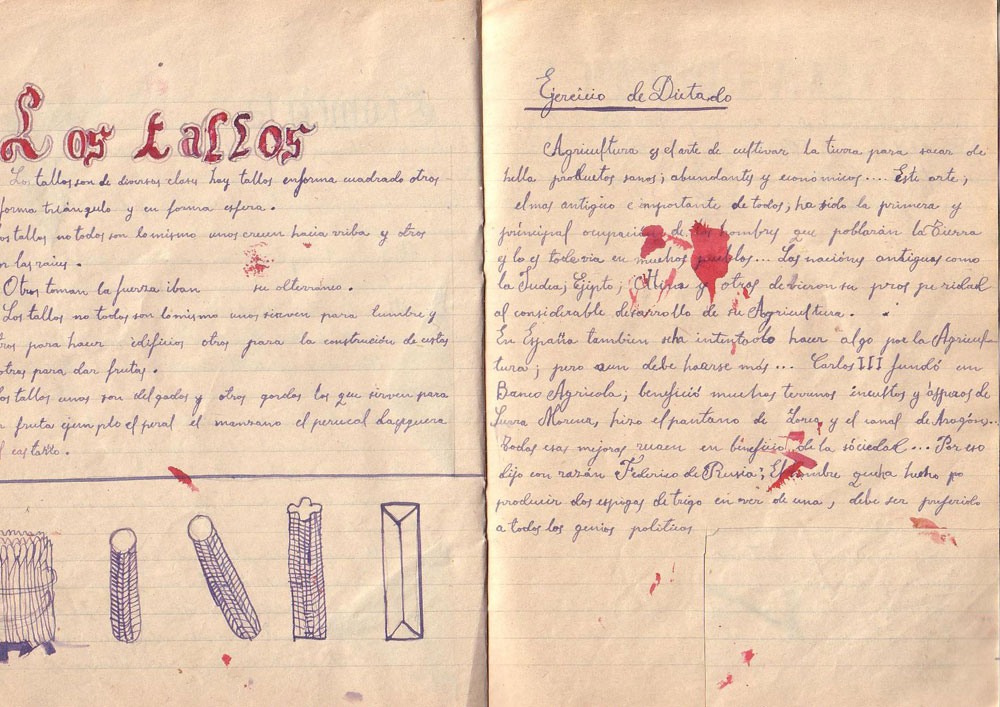 Los tallos
Los tallos son de diversas clases hay tallos enforma cuadrado otros
forma triángulo y en forma esfera.
os tallos no todos son lomismo unos crecen hacia rriba y otros
n las raices.
Otros toman la fuerza iban su olterráneo.
Los tallos no todos son lomismo unos sirven para lumbre y
ros para hacer edificios otros para la construción de estas
otros para dar frutas.
os tallos unos son delgados y otros gordos los que sirven para
n fruta ejemplo el peral el manzano el perucal
l castaño.
Ejercicio de Dictado
Agricultura es el arte de cultivar la tierra para sacar de
hella productos sanos; abundants y económicos.... Este arte;
elmas antigico e importante de todos; ha sido la primera y
principal ocupación de los hombres que poblarán la tierra
y lo es todavia en muchos pueblos... Las nacións antiguas como
la Judea; Egipto; China y otros debieron su pros pe ridad
al considerable desarrollo de su Agricultura.
En España tambien seha intentado hacer algo por la Agricul-
tura; pero aun debe hacerse más... Carlos III fundó un
Banco Agricola; benefició muchos terrenos incultos y ásperos de
Sierra Morena, hizo el pantano de Lorca y el canal de Aragón...
Todas esas mejoras en beneficio de la sociedad... Por eso
dijo con razón Federico de Rusia; El hombre queha hecho po
producir dos espigas de trigo en ver de una, debe ser preferido
a todos los genios politicos